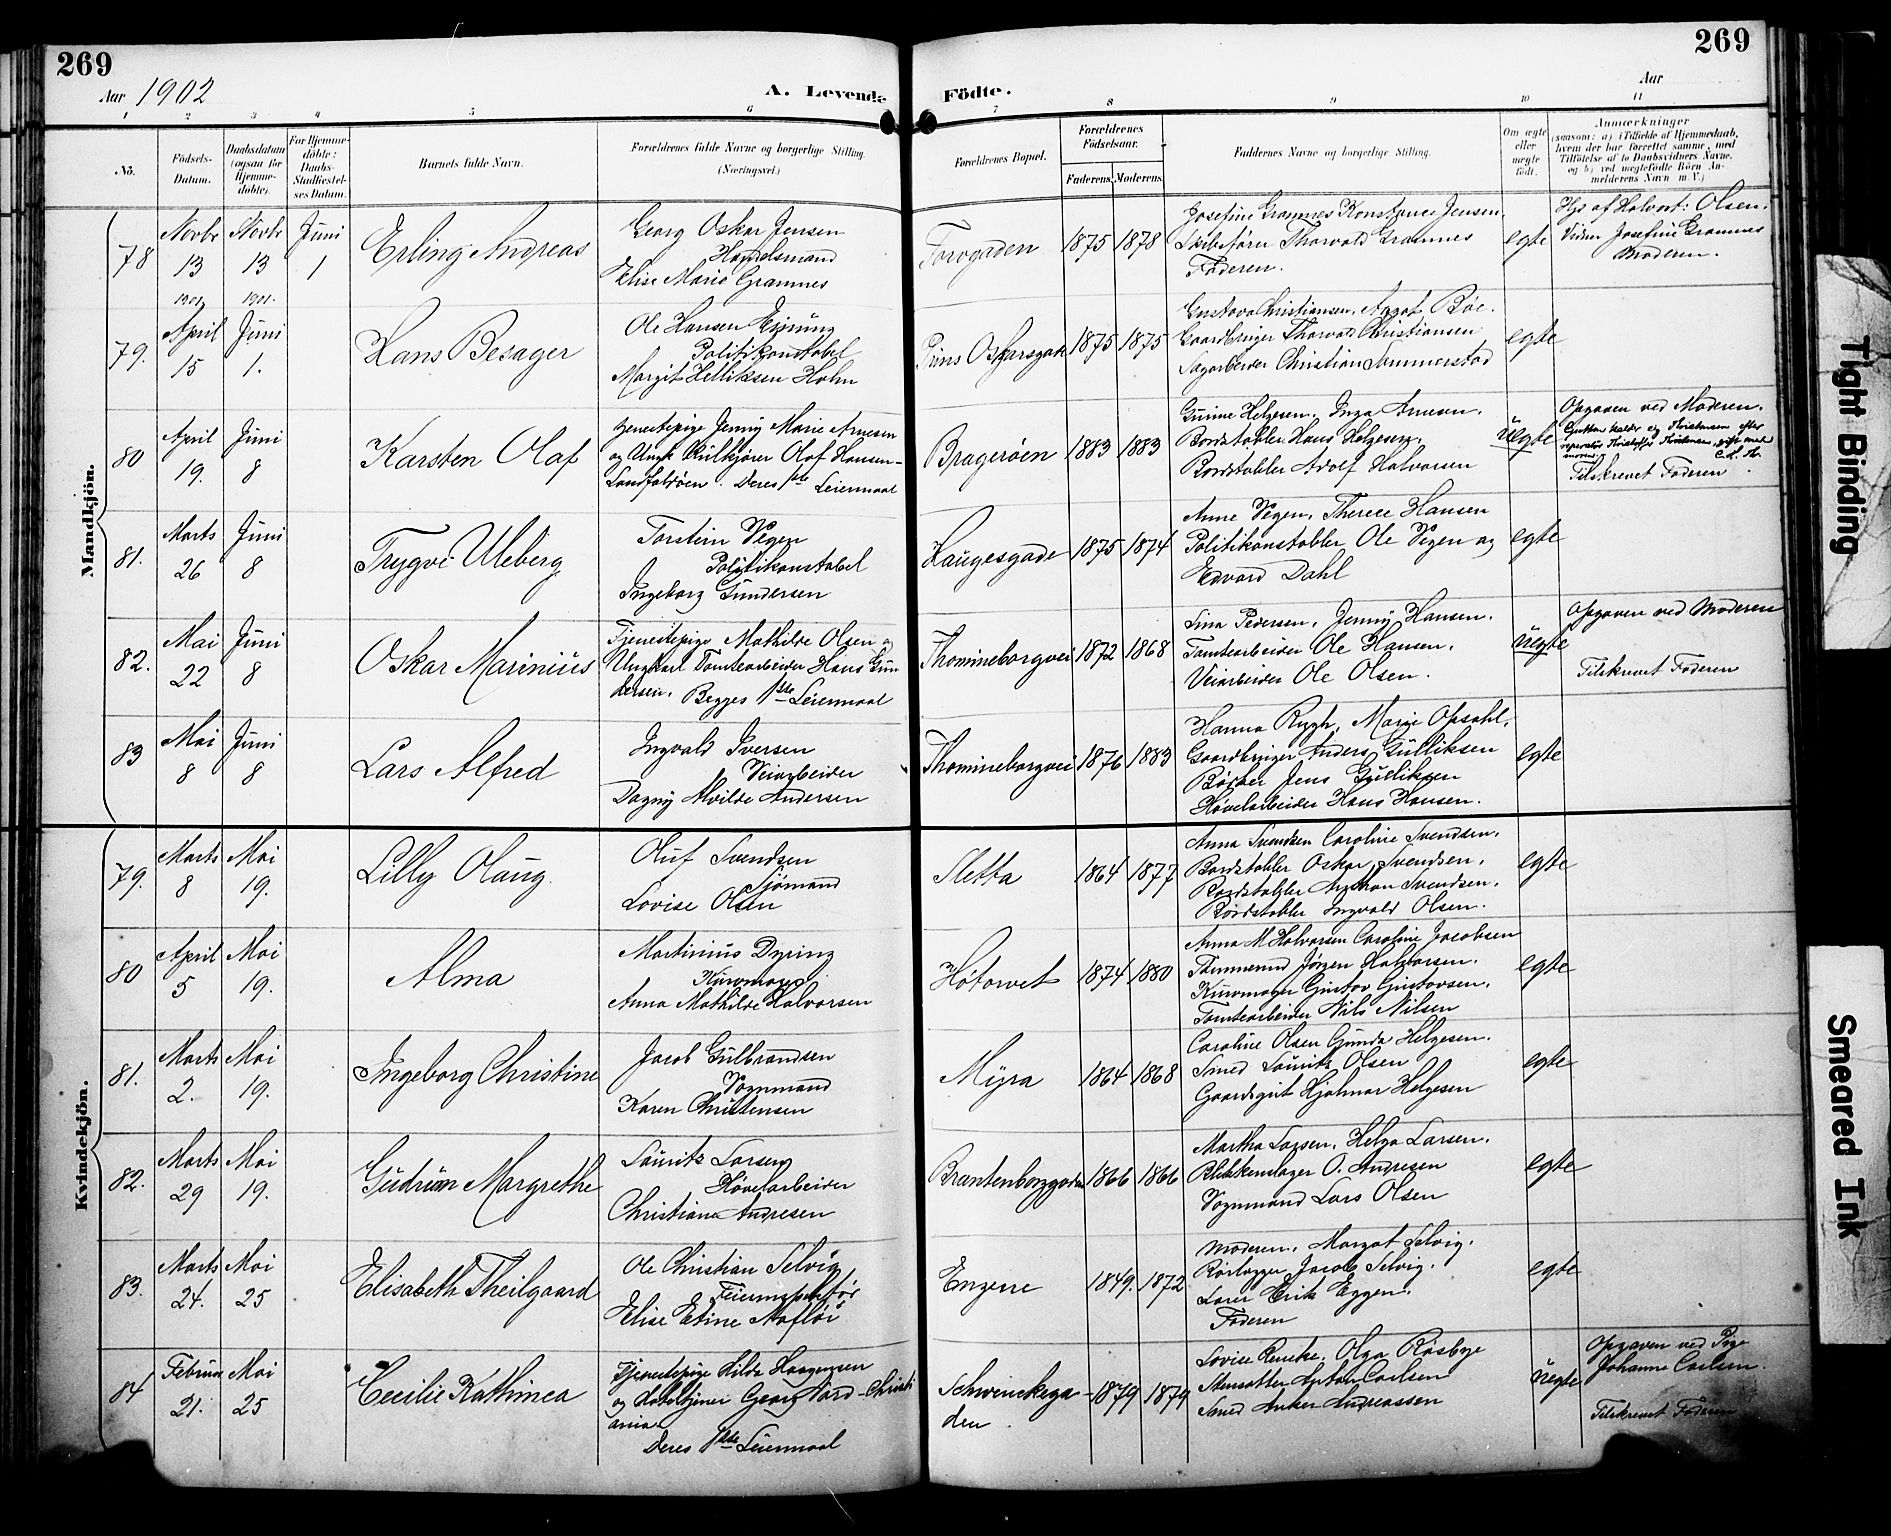 269
269
Aar 1902
A. Levende Födte.
Aar
1 2 3 4 5 6 7 8 9 10 11
No.
Födsels-Datum.
Daabsdatum (ogsaa for Hjemmedöbte).
For Hjemmedöbte: Daabs-Stadfæstelses Datum.
Barnets fulde Navn.
Forældrenes fulde Navne og borgerlige Stilling. (Næringsvei.)
Forældrenes Bopæl.
Forældrenes Födselsaar.
Faderens. Moderens.
Faddernes Navne og borgerlige Stilling.
Om ægte eller uægte födt.
Anmærkninger
(saasom: a) i Tilfælde af Hjemmedaab, hvem der har forrettet samme, med Tilföielse af to Daabsvidners Navne, og b) ved uægtefödte Börn Anmelderens Navn m. V.)
Mandkjön.
78 Novbr 13 1901 Novbr 13 1901. Juni 1
Erling Andreas
Georg Oskar Jensen
Handelsmand
Elise Marie Gramnes
Torvgaden 1875 1878
Josefine Gramnes Konstance Jensen.
Thorvald Gramnes
Faderen.
egte
Hjd af Halvort: Olsen.
Vidner Josefine Gramnes
Moderen.
79. April 15 Juni 1.
Hans Besager
Ole Hansen
Politikonstabel
Margit Helliksen Holm
Prins Oskarsgade 1875 1875
Gustava Christiansen, Aagot Bøe.
Gaardbruger Thorvald Christiansen
Sagarbeider Christian Sommerstad
egte
80 April 19. Juni 8
Karsten Olaf
Tjenestepige Jenny Marie Arnesen
og Ungk Kulkjører Olaf Hansen-
Landfaldøen. Deres 1ste Leiermaal
Bragerøen 1883 1883
Gurine Helgesen, Inga Arnesen.
Bordstabler Hans Helgesen.
Bordstabler Adolf Halvorsen
uegte
Opgaven ved Moderen.
Tilskrevet Faderen
81. Marts 26 Juni 8
Trygve Uleberg
Torstein Vegen
Politikonstabel
Ingeborg Gundersen
Haugesgade 1875 1874
Anne Vegen, Therese Hansen
Politikonstabler Ole Vegen og
Edvard Dahl
egte
82. Mai 22 Juni 8
Oskar Marinius
Tjenestepige Mathilde Olsen og
Ungkarl Tomtearbeider Hans Gun
dersen. Begges 1ste Leiermaal
Thomineborgvei 1872 1868
Lina Pedersen, Jenny Hansen.
Tomtearbeider Ole Hansen.
Veiarbeider Ole Olsen.
uegte
Opgaven ved Moderen
Tilskrevet Faderen
83 Mai 8 Juni 8
Lars Alfred
Ingvald Iversen
Veiarbeider
Dagny Alvilde Andersen
Thomineborgvei 1876 1883
Hanna Rygh, Marie Opsahl.
Gaardbruger Anders Gulliksen
Bøtker Jens Gulliksen
Høvelarbeider Hans Hansen.
egte
Kvindekjön.
79. Marts 8 Mai 19.
Lilly Olaug.
Oluf Svendsen
Sjømand
Lovise Olsen
Sletta 1864 1877
Anna Svendsen Caroline Svendsen.
Bordstabler Oskar Svendsen.
Bordstabler Arthur Svendsen.
Bordstabler Ingvald Olsen.
egte
80 April 5 Mai 19.
Alma
Martinius Dyring
Kurvmager
Anna Mathilde Halvorsen
Høtorvet 1874 1880
Anna M Halvorsen Caroline Jacobsen
Tømmermd Jørgen Halvorsen.
Kurvmager Gustav Gustavsen.
Tomtearbeider Nils Nilsen
egte
81. Marts 2. Mai 19.
Ingeborg Christine
Jacob Gulbrandsen
Vognmand
Karen Christensen
Myra 1864 1868
Caroline Olsen Gunda Helgesen.
Smed Lauritz Olsen
Gaardsgut Hjalmar Helgesen
egte
82. Marts 29 Mai 19.
Gudrun Margrethe
Lauritz Larsen
Høvelarbeider
Christiane Andresen
Brantenborggaden 1866 1866
Martha Larsen, Helga Larsen.
Blikkenslager O. Andresen
Vognmand Lars Olsen
egte
83. Marts 24. Mai 25
Elisabeth Theilgaard
Ole Christian Selvig
Feierinspektør
Elise Etine
Engene 1849. 1872
Moderen, Margot Selvig.
Rørlægger Jacob Selvig.
Lærer Erik Eggen.
Faderen
egte
84 Februar 21. Mai 25
Cecilie Kathinca
Tjenestepige Hilda Haagensen
og Hoteltjener Georg Nord-Christi
ania
Deres 1ste Leiermaal
Schwenckega
den. 1879 1879
Lovise Rencke, Olga Røsbye
Stensætter Anton Carlsen
Smed Anker Andreassen
uegte
Opgaven ved Pige
Johanne Carlsen.
Tilskrevet Faderen
Tight Binding
Smeared Ink